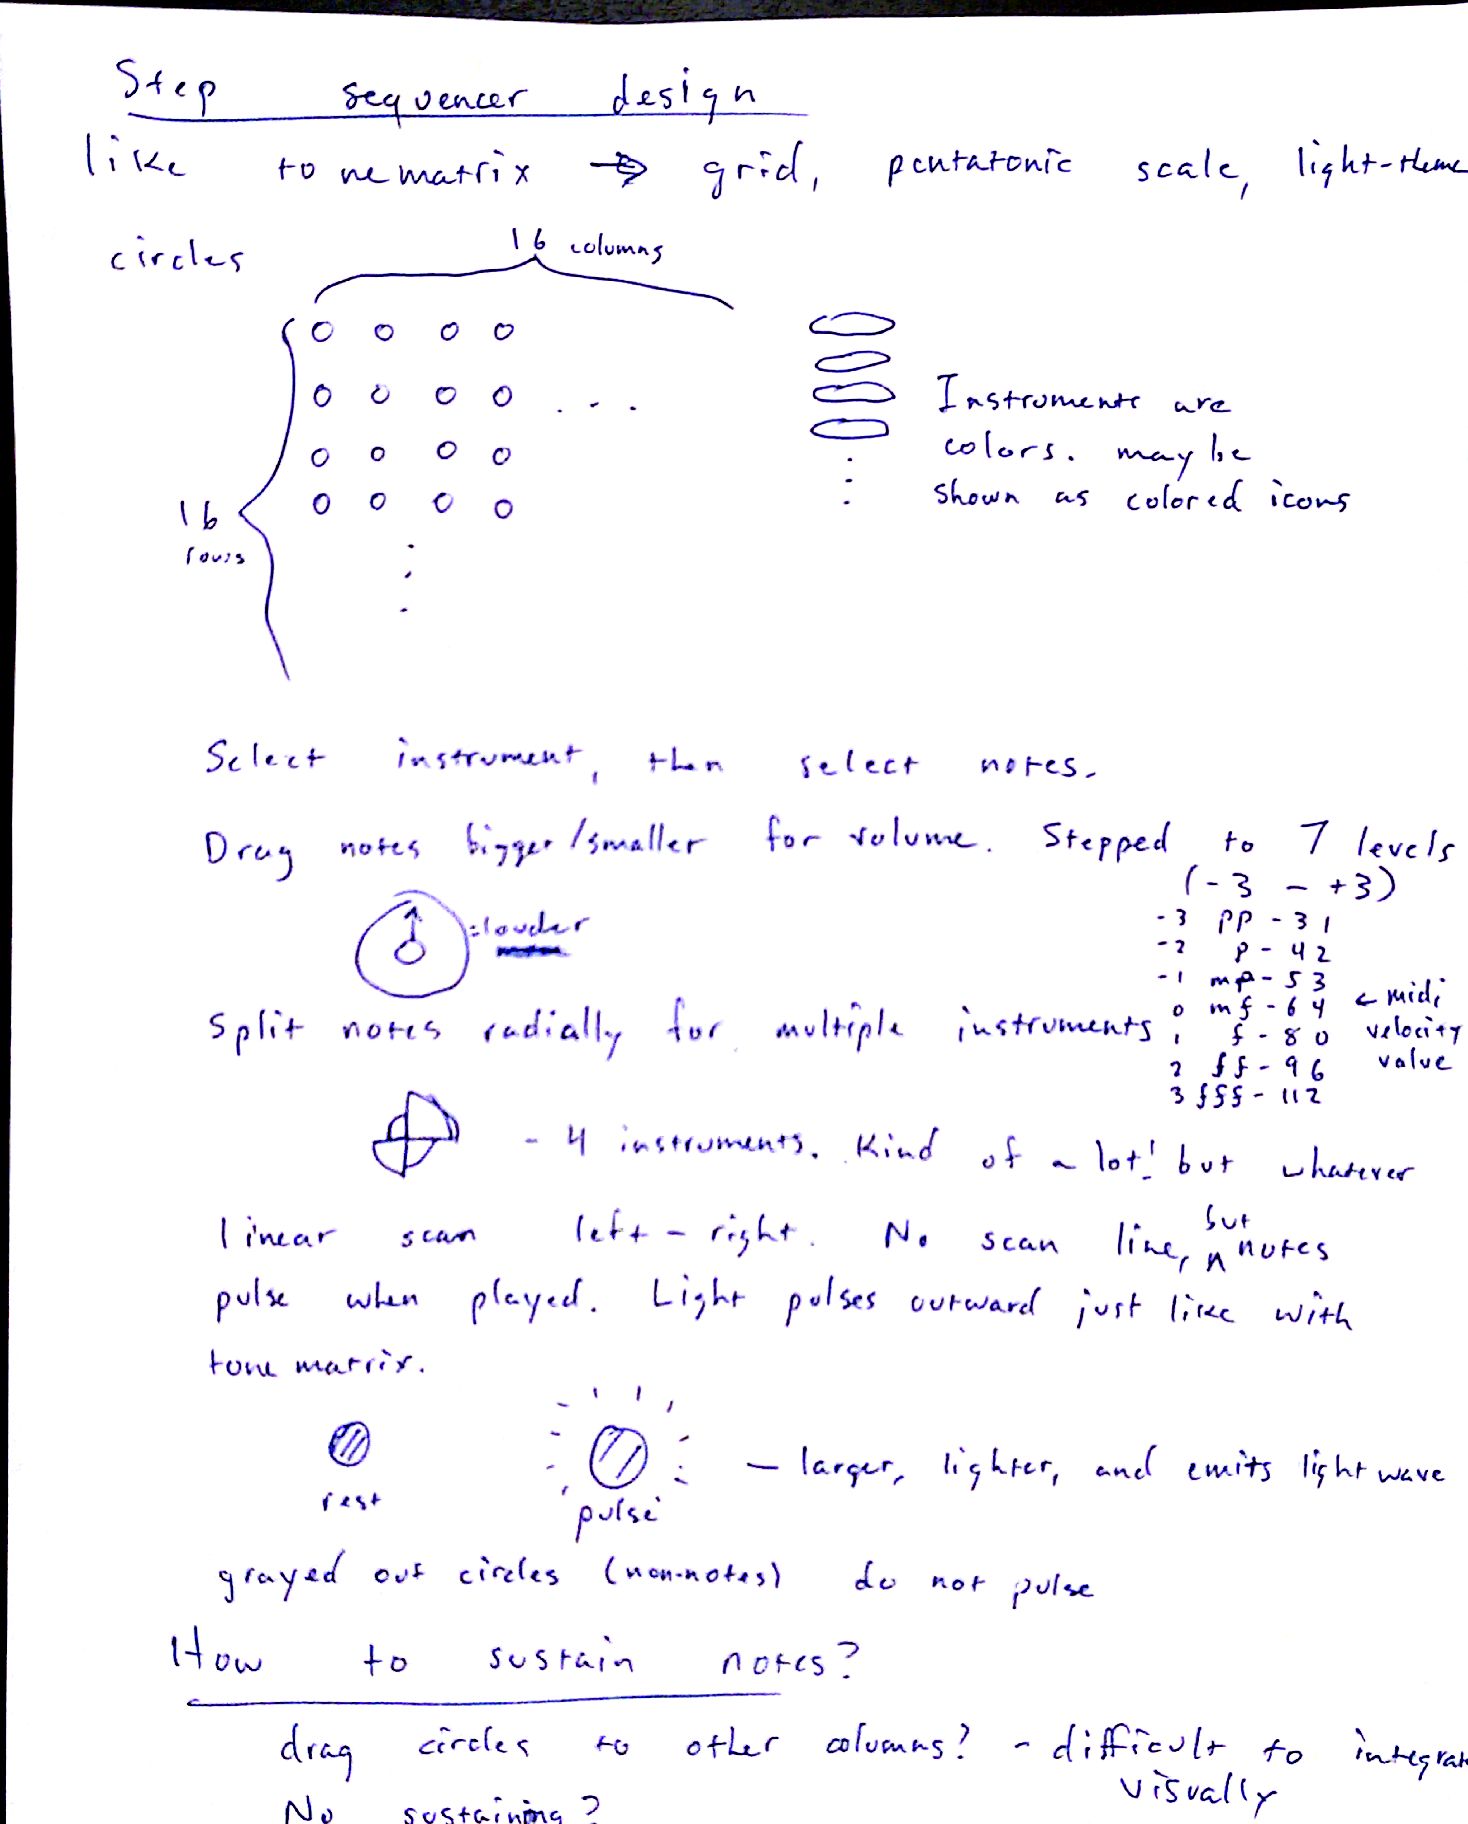 Step sequencer design
like tonematrix → grid, pentatonic scale, light-theme
circles
16 columns
16
rows
Instruments are
colors. may be
shown as colored icons
Select instrument, then select notes.
Drag notes bigger/smaller for volume. Stepped to 7 levels
(-3 - +3)
-3 pp - 31
-2 p - 42
-1 mp - 53
0 mf - 64
1 f - 80
2 ff - 96
3 fff - 112
← midi
velocity
value
=louder
Split notes radially for multiple instruments
- 4 instruments. Kind of a lot! but whatever
linear scan left - right. No scan line, but notes
pulse when played. Light pulses outward just like with
tone matrix.
rest
pulse
— larger, lighter, and emits light wave
grayed out circles (non-notes) do not pulse
How to sustain notes?
drag circles to other columns? - difficult to integrate
visually
No sustaining?